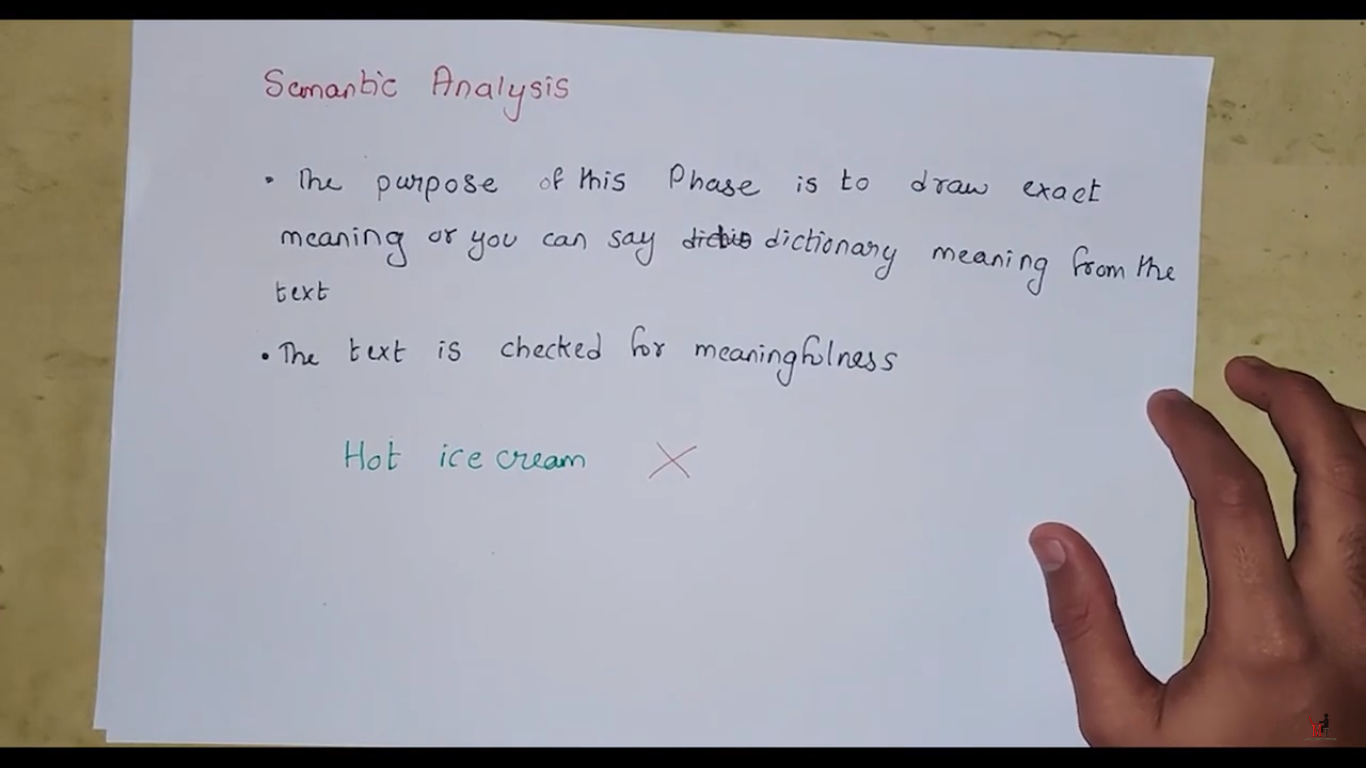 Semantic Analysis
• The purpose of this Phase is to draw exact
meaning or you can say dictionary meaning from the
text
• The text is checked for meaningfulness
Hot ice cream X